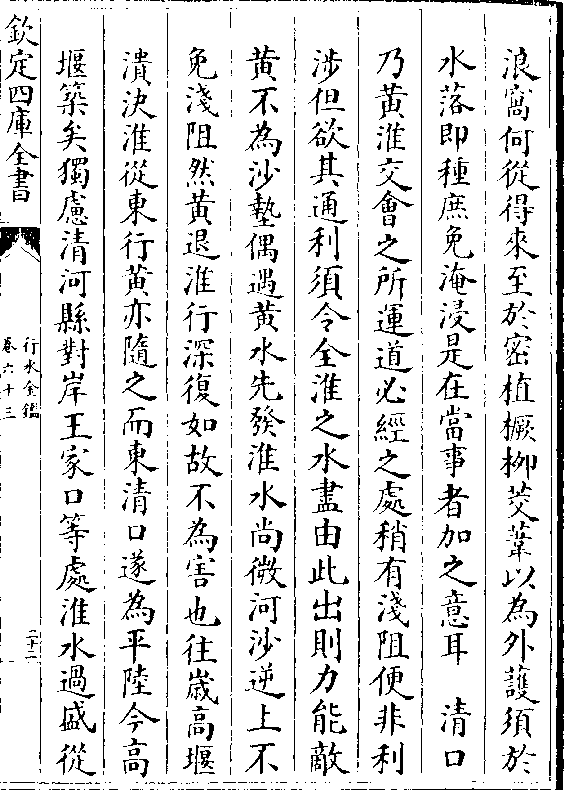 浪窩何從得來至於密植橛柳茭葦以為外䕶須於
水落即種庶免淹浸是在當事者加之意耳　清口
乃黄淮交會之所運道必經之處稍有淺阻便非利
涉但欲其通利須令全淮之水盡由此出則力能敵
黄不為沙墊偶遇黄水先發淮水尚微河沙逆上不
免淺阻然黄退淮行深復如故不為害也往嵗高堰
潰决淮從東行黄亦隨之而東清口遂為平陸今高
堰築矣獨慮清河縣對岸王家口等處淮水過盛從
欽定四庫全書
行水金鑑
卷六十三
二十二